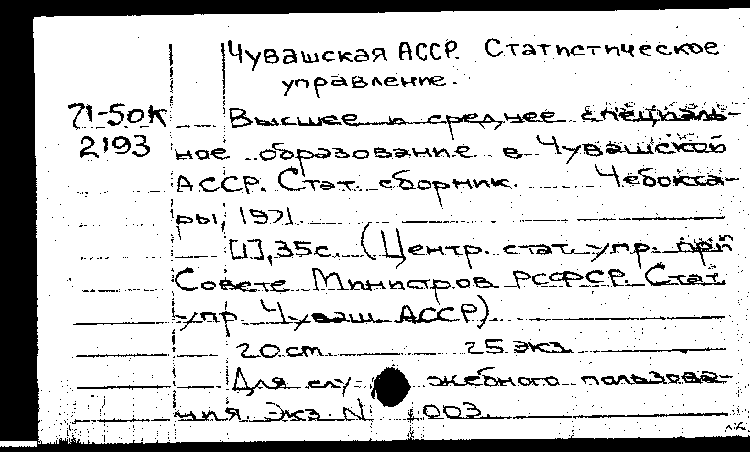 Чувашская АССР. Статистическое
управление.
71-50к Высшее и среднее специаль-
2193 ное образование в Чувашской
АССР. Стат. сборник. Чебокса-
ры, 1971.
[1], 35с. (Центр. стат. упр. при
Совете Министров РСФСР. Стат.
упр. Чуваш. АССР).
20 см. 25 экз.
Для слу- жебного пользова-
ния. Экз. N 003.